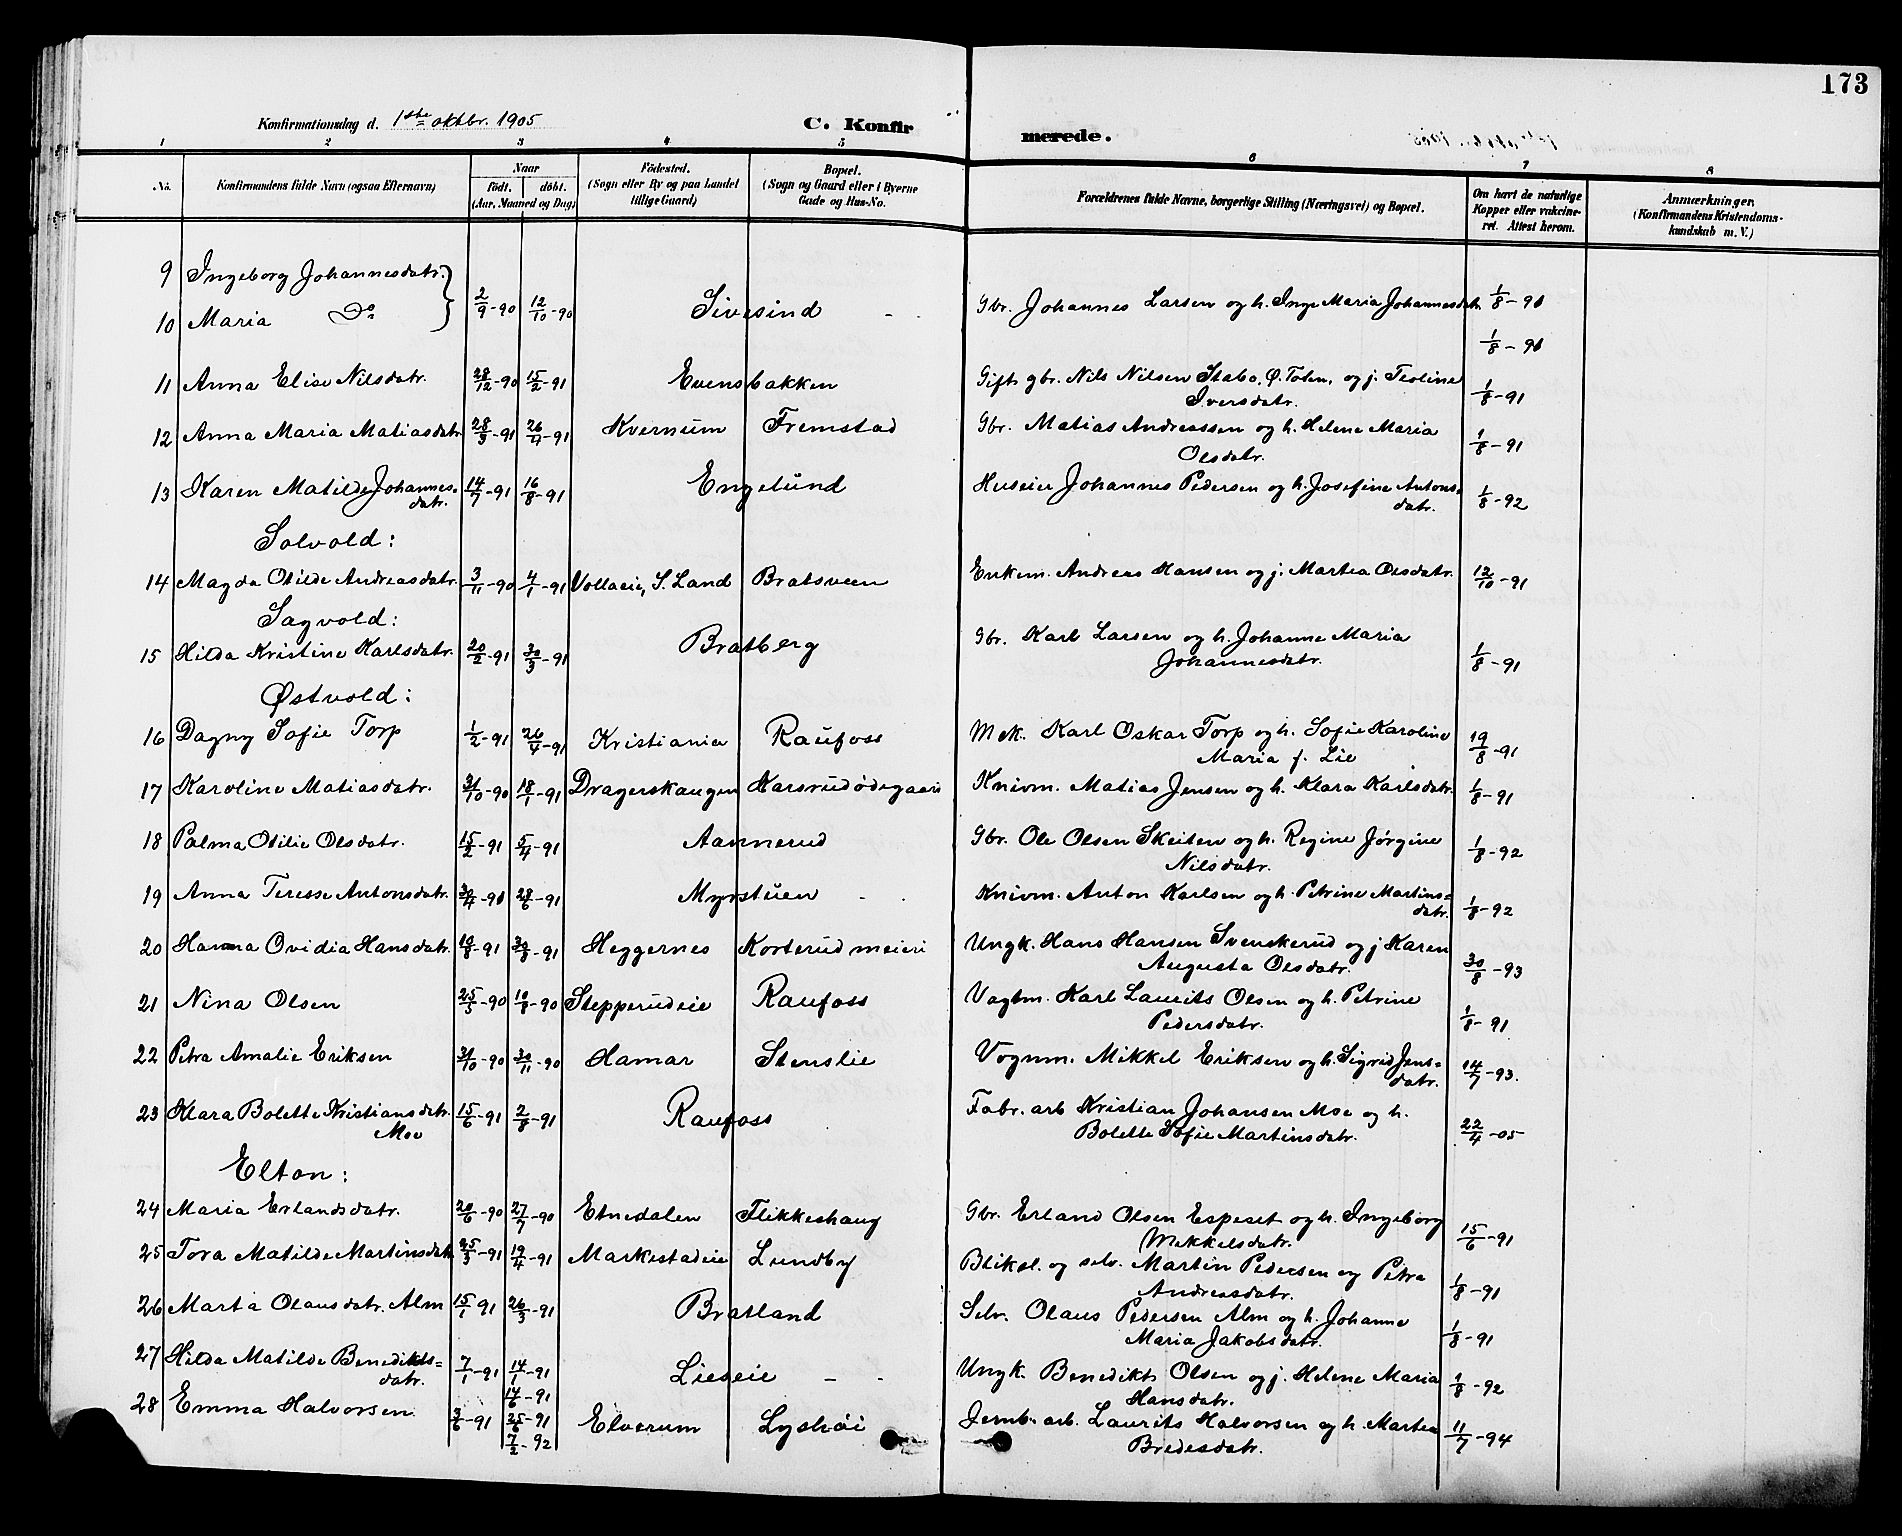 173
Konfirmationsdag d. 1ste oktbr. 1905 C. Konfirmerede.
1 2 3 4 5 6 7 8
No. Konfirmandens fulde Navn (ogsaa Efternavn) Naar födt. döbt. (Aar, Maaned og Dag) Födested. (Sogn eller By og paa Landet tillige Gaard) Bopæl. (Sogn og Gaard eller i Byerne Gade og Hus-No. Forældrenes fulde Navne, borgerlige Stilling (Næringsvei) og Bopæl. Om havt de naturlige Kopper eller vakcineret. Attest herom. Anmærkninger. (Konfirmandens Kristendomskundskab m. V.)
9 Ingeborg Johannesdatr. }
10 Maria Do } 2/9-90 12/10-90 Sivesind Gbr. Johannes Larsen og h. Inge Maria Johannesdatr. 1/8-91
1/8-91
11 Anna Elise Nilsdatr. 28/12-90 15/2-91 Evensbakken Gift gbr. Nils Nilsen Stabo, Ø. Toten, og j. Teoline
Iversdatr. 1/8-91
12 Anna Maria Matiasdatr. 28/3-91 26/4-91 Kvernum Fremstad Gbr. Matias Andreassen og h. Helene Maria
Olsdatr. 1/8-91
13 Karen Matilde Johannes=
datr. 14/7-91 16/8-91 Engelund Huseier Johannes Pedersen og h. Josefine Antons=
datr. 1/8-92
Solvold:
14 Magda Otilde Andreasdatr. 3/11-90 4/1-91 Vollaeie, S. Land Bratsveen Enkem. Andreas Hansen og j. Martea Olsdatr. 12/10-91
Sagvold:
15 Hilda Kristine Karlsdatr. 20/2-91 30/3-91 Bratberg Gbr. Karl Larsen og h. Johanne Maria
Johannesdatr. 1/8-91
Østvold:
16 Dagny Sofie Torp 1/2-91 26/4-91 Kristiania Raufoss Mek. Karl Oskar Torp og h. Sofie Karoline
Maria f. Lie 19/8-91
17 Karoline Matiasdatr. 31/10-90 18/1-91 Dragerskaugen Karsrudødegaard Knivm. Matias Jensen og h. Klara Karlsdatr. 1/8-91
18 Palma Otilie Olsdatr. 15/2-91 5/4-91 Aannerud Gbr. Ole Olsen Skeiten og h. Regine Jørgine
Nilsdatr. 1/8-92
19 Anna Teresse Antonsdatr. 30/4-91 28/6-91 Myrstuen Knivm. Anton Karlsen og h. Petrine Martins=
datr. 1/8-92
20 Hanna Ovidia Hansdatr. 19/8-91 30/8-91 Heggernes Korterud meieri Ungk. Hans Hansen Svenskerud og j. Karen
Augusta Olsdatr. 30/8-93
21 Nina Olsen 25/5-90 10/8-90 Stepperudeie Raufoss Vagtm. Karl Laurits Olsen og h. Petrine
Pedersdatr. 1/8-91
22 Petra Amalie Eriksen 31/10-90 30/11-90 Hamar Stenslie Vognm. Mikkel Eriksen og h. Sigrid Jens=
datr. 14/7-93.
23 Klara Bolette Kristiansdatr.
Moe 15/6-91 2/8-91 Raufoss Fabr. arb Kristian Johansen Moe og h.
Bolette Sofie Martinsdatr. 22/4-05
Elton:
24 Maria Erlandsdatr. 20/6-90 27/7-90 Etnedalen Flikkeshaug Gbr. Erland Olsen Espeset og h. Ingeborg
Mekkelsdatr. 15/6-91
25 Tora Matilde Martinsdatr. 25/3-91 19/4-91 Markestadeie Lundby Bliksl. og selv. Martin Pedersen og Petra
Andreasdatr. 1/8-91
26 Marta Olausdatr. Alm 15/1 91 26/3-91 Bratland Selv. Olaus Pedersen Alm og h. Johanne
Maria Jakobsdatr. 1/8-91
27 Hilda Matilde Benedikts=
datr. 7/1-91 14/1-91 Lieseie Ungk. Benedikt Olsen og j. Helene Maria
14/6-91 Hansdatr. 1/8-92
28 Emma Halvorsen 3/6-91 25/6-91 Elverum Lyshøi Jernb. arb. Laurits Halvorsen og h. Martea
7/2-92 Bredesdatr. 11/7-94